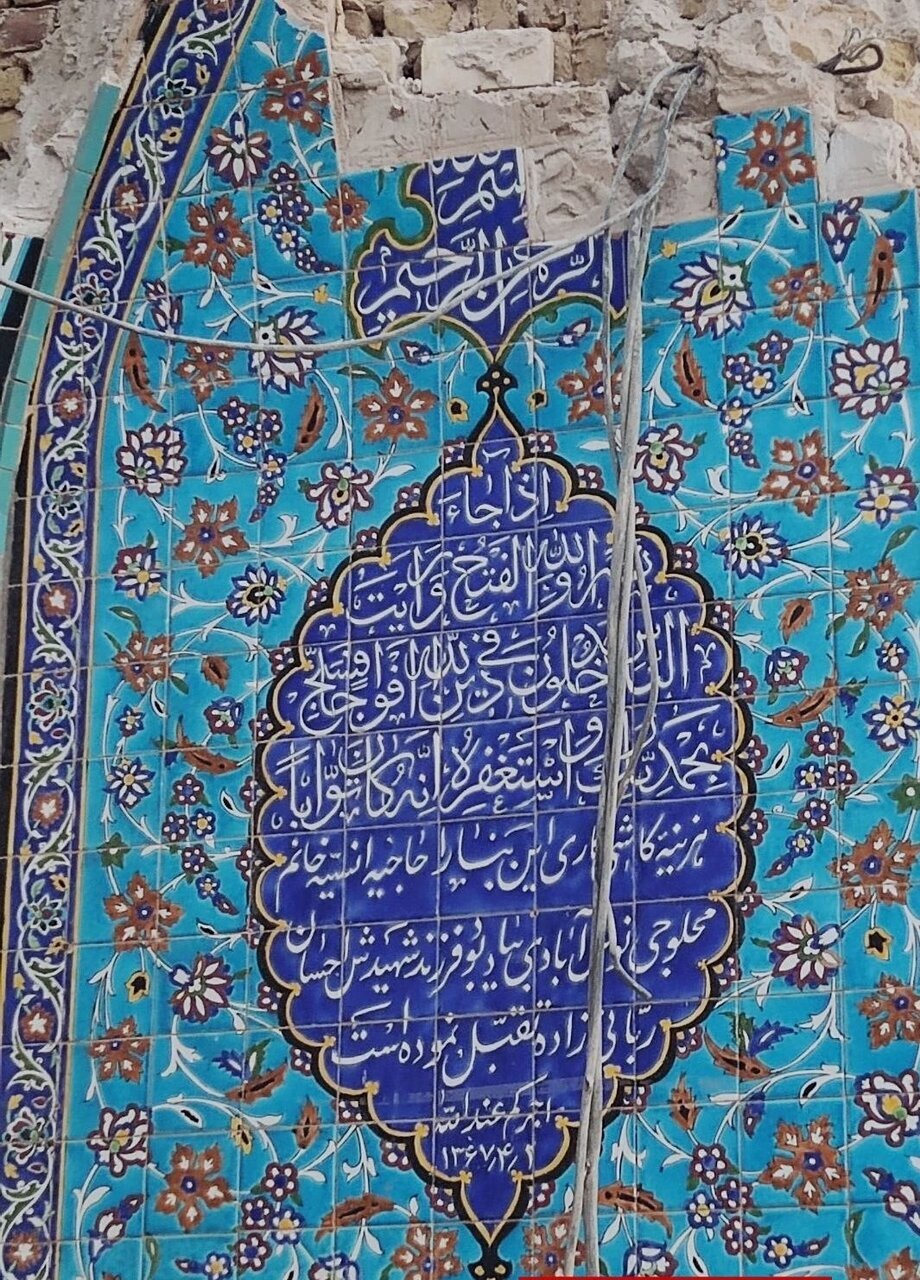 بسم الله
الرحمن الرحیم
اذا جاء
نصر الله والفتح ورایت
الناس یدخلون فی دین الله افواجا فسبح
بحمد ربک و استغفره انه کان توابا
هزینه کاشی کاری این بنا را حاجیه انسیه خانم
محلوجی آبادی بیاد بود فرزند شهیدش احسان
ربانی زاده تقبل نموده است
اجرکم عند الله
۱۳۶۷/۴/۱